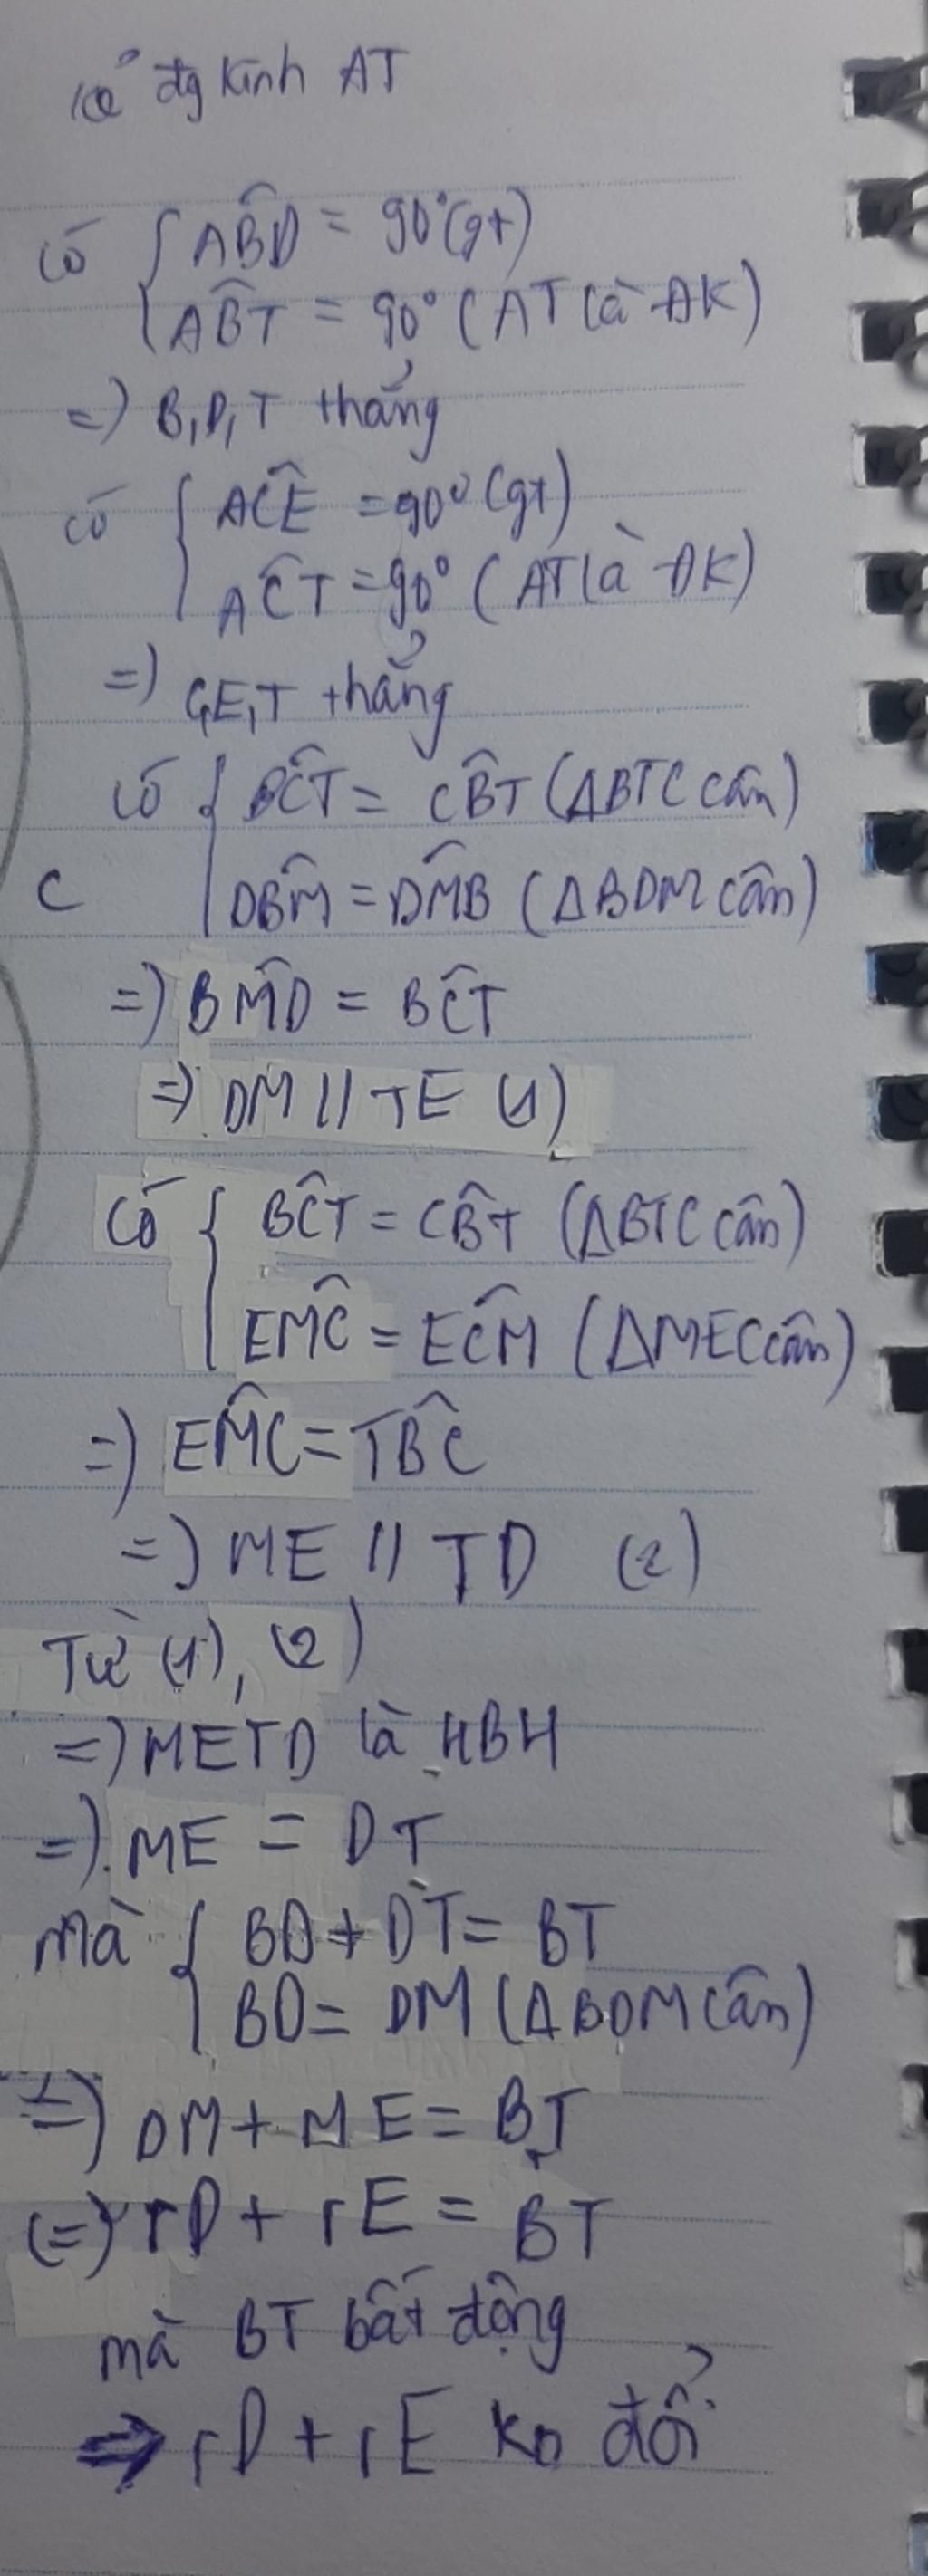 kẻ đg kính AT
có { AB̂D = 90° (gt)
AB̂T = 90° (AT là ĐK)
=> B, D, T thẳng
có { AĈE = 90° (gt)
AĈT = 90° (AT là ĐK)
=> C, E, T thẳng
có { BĈT = CB̂T (ΔBTC cân)
C DB̂M = DM̂B (ΔBDM cân)
=> BM̂D = BĈT
=> DM // TE (1)
có { BĈT = CB̂T (ΔBTC cân)
EM̂C = EĈM (ΔMEC cân)
=> EM̂C = TB̂C
=> ME // TD (2)
Từ (1), (2)
=> METD là HBH
=> ME = DT
mà { BD + DT = BT
BD = DM (ΔBDM cân)
=> DM + ME = BT
(=) rD + rE = BT
mà BT bất động
=> rD + rE ko đổi